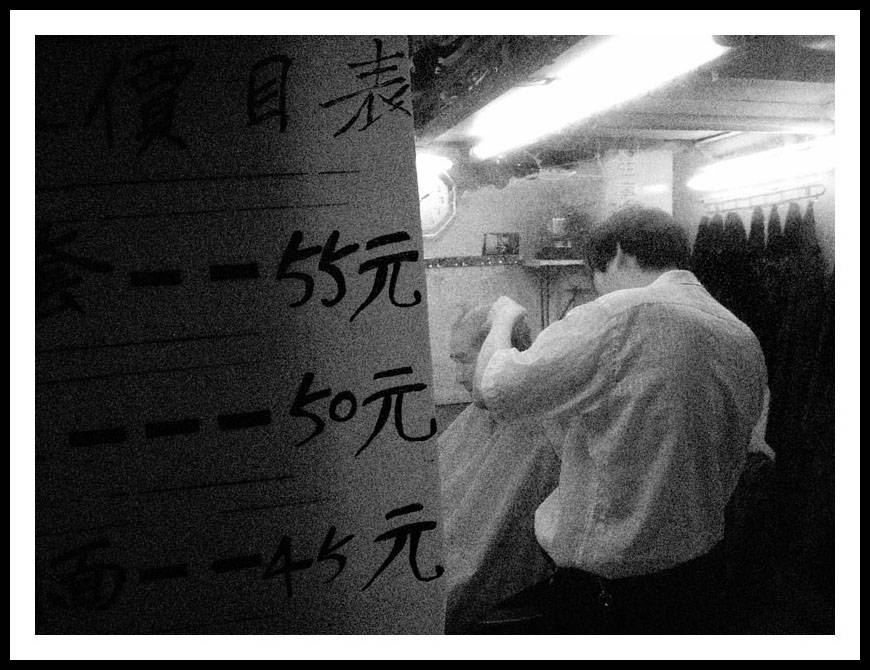 價目表
套 -- 55元
--- 50元
面 -- 45元